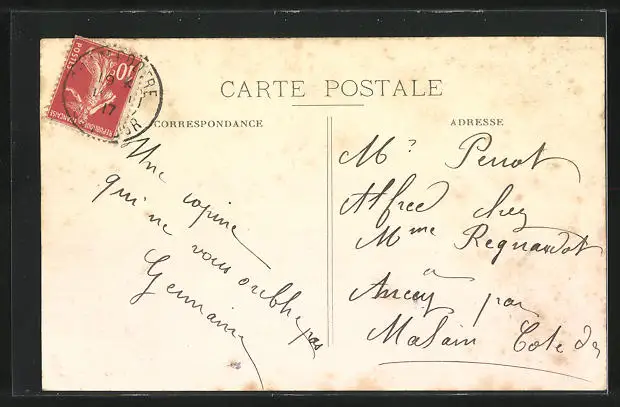 CARTE POSTALE
CORRESPONDANCE
ADRESSE
POSTES
10
REPUBLIQUE FRANÇAISE
17
Une copine
qui ne vous oublie pas
Germaine
Mr Perrot
Alfred chez
Mme Regnardot
à
Ancey par
Malain Cote dor